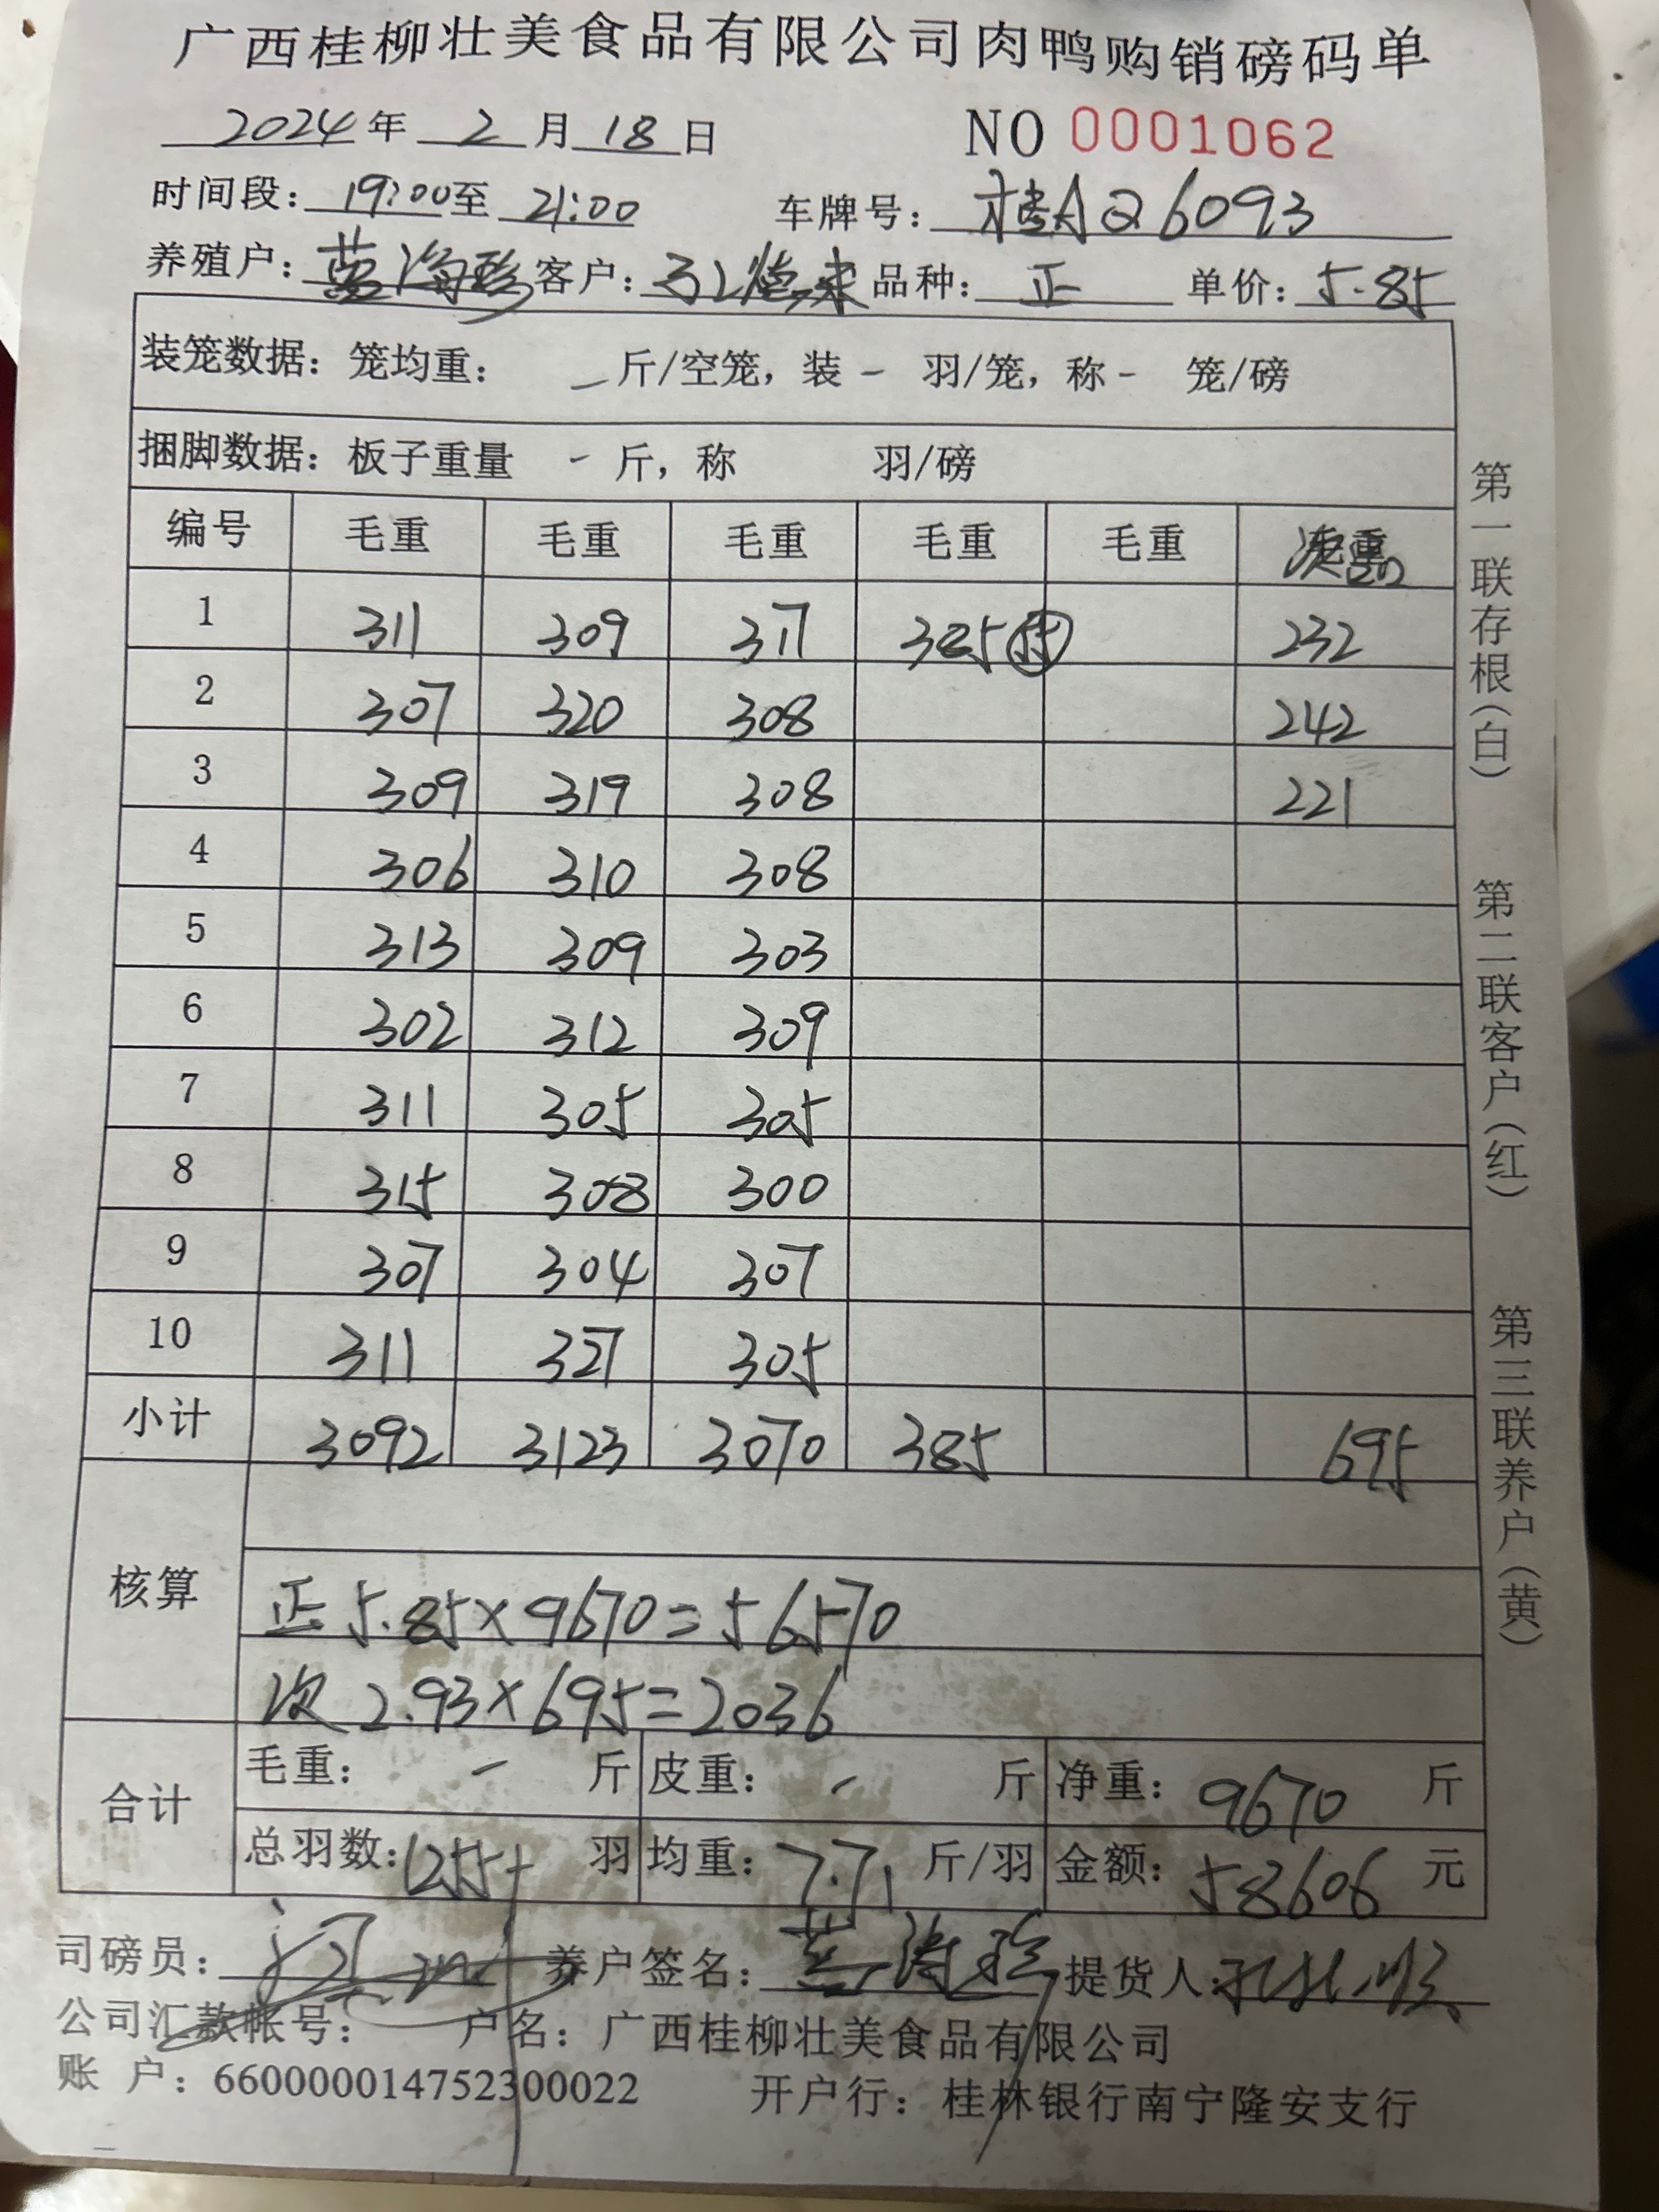 广西桂柳壮美食品有限公司肉鸭购销磅码单
2024年 2月18日 NO 0001062
时间段：19:00至 21:00 车牌号：桂AQ6093
养殖户：黄海珍 客户： 品种：正 单价：5.85
装笼数据：笼均重： - 斤/空笼，装 - 羽/笼，称 - 笼/磅
捆脚数据：板子重量 - 斤，称 羽/磅
编号 毛重 毛重 毛重 毛重 毛重
1 311 309 317 385 232
2 307 320 308 242
3 309 319 308 221
4 306 310 308
5 313 309 303
6 302 312 309
7 311 305 305
8 315 308 300
9 307 304 307
10 311 327 305
小计 3092 3123 3070 385 695
核算
正 5.85×9670=56570
次 2.93×695=2036
合计 毛重： - 斤 皮重： - 斤 净重：9670 斤
总羽数：1255 羽 均重：7.71 斤/羽 金额：58606 元
司磅员： 养户签名：黄海珍 提货人：
公司汇款帐号： 户名：广西桂柳壮美食品有限公司
账 户：660000014752300022 开户行：桂林银行南宁隆安支行
第一联存根（白） 第二联客户（红） 第三联养户（黄）